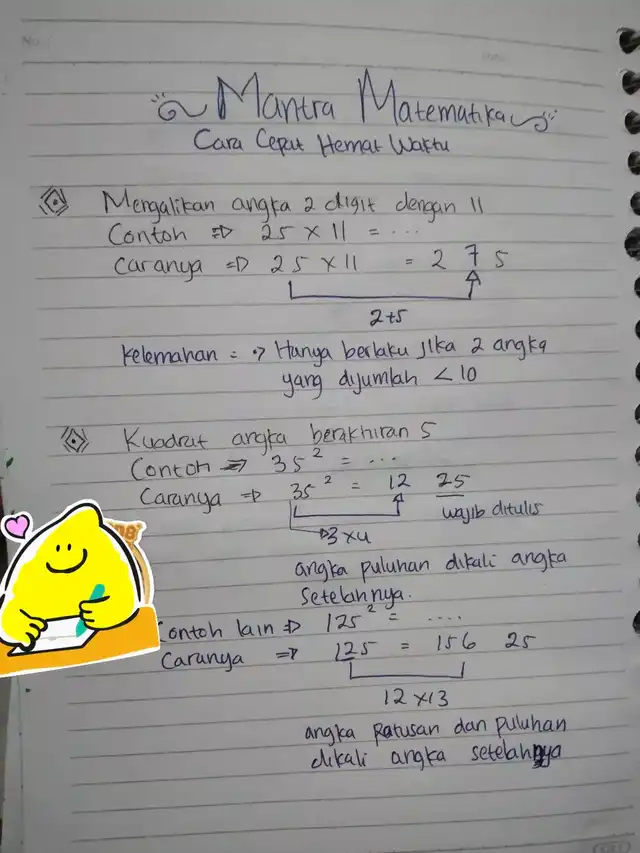 Mantra Matematika
Cara Cepat Hemat Waktu
Mengalikan angka 2 digit dengan 11
Contoh => 25 x 11 = ...
Caranya => 25 x 11 = 2 7 5
2+5
Kelemahan = -> Hanya berlaku jika 2 angka
yang dijumlah < 10
Kuadrat angka berakhiran 5
Contoh => 35² = ...
Caranya => 35² = 12 25
wajib ditulis
->3 x 4
angka puluhan dikali angka
setelahnya.
Contoh lain => 125² = ....
Caranya => 125 = 156 25
12 x 13
angka ratusan dan puluhan
dikali angka setelahnya